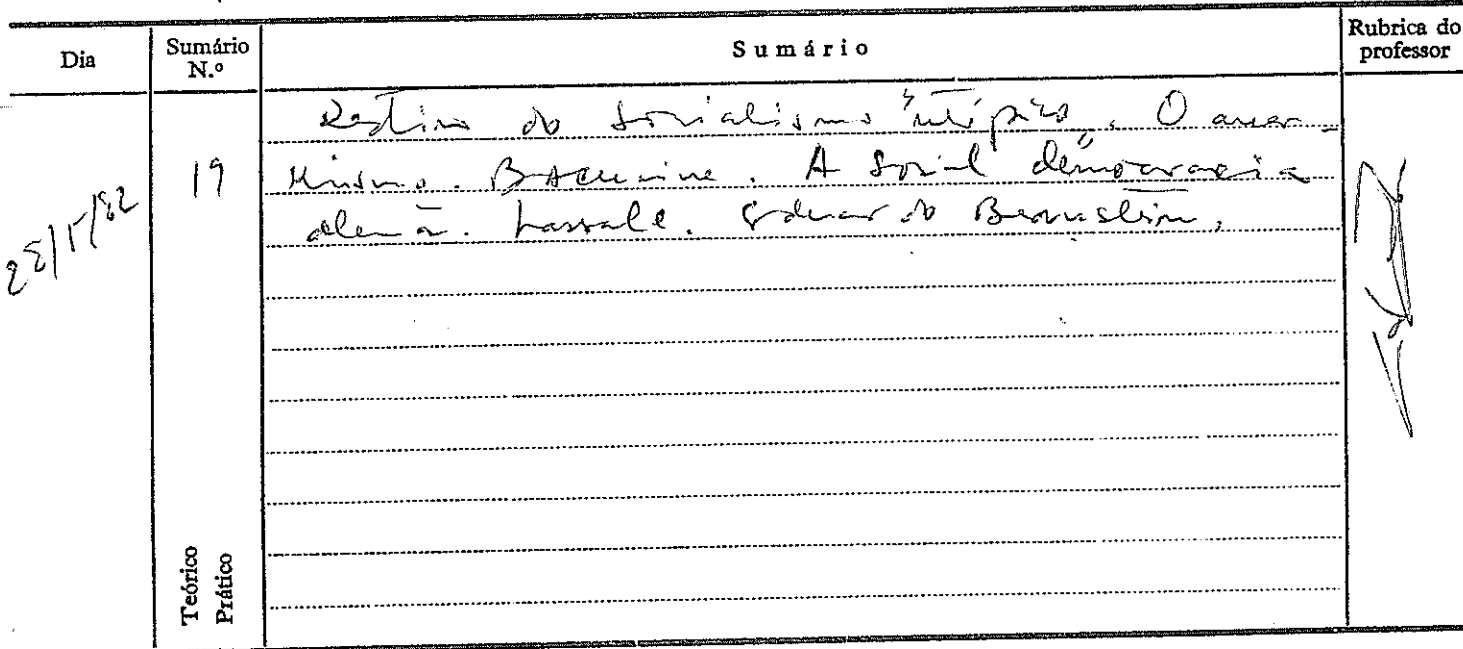 Dia
Sumário N.º
Sumário
Rubrica do professor
19
do Socialismo "utópico". O anar-
quismo. Bacunine. A Social democracia
alemã. Lassale. Eduardo Bernstein.
Teórico
Prático